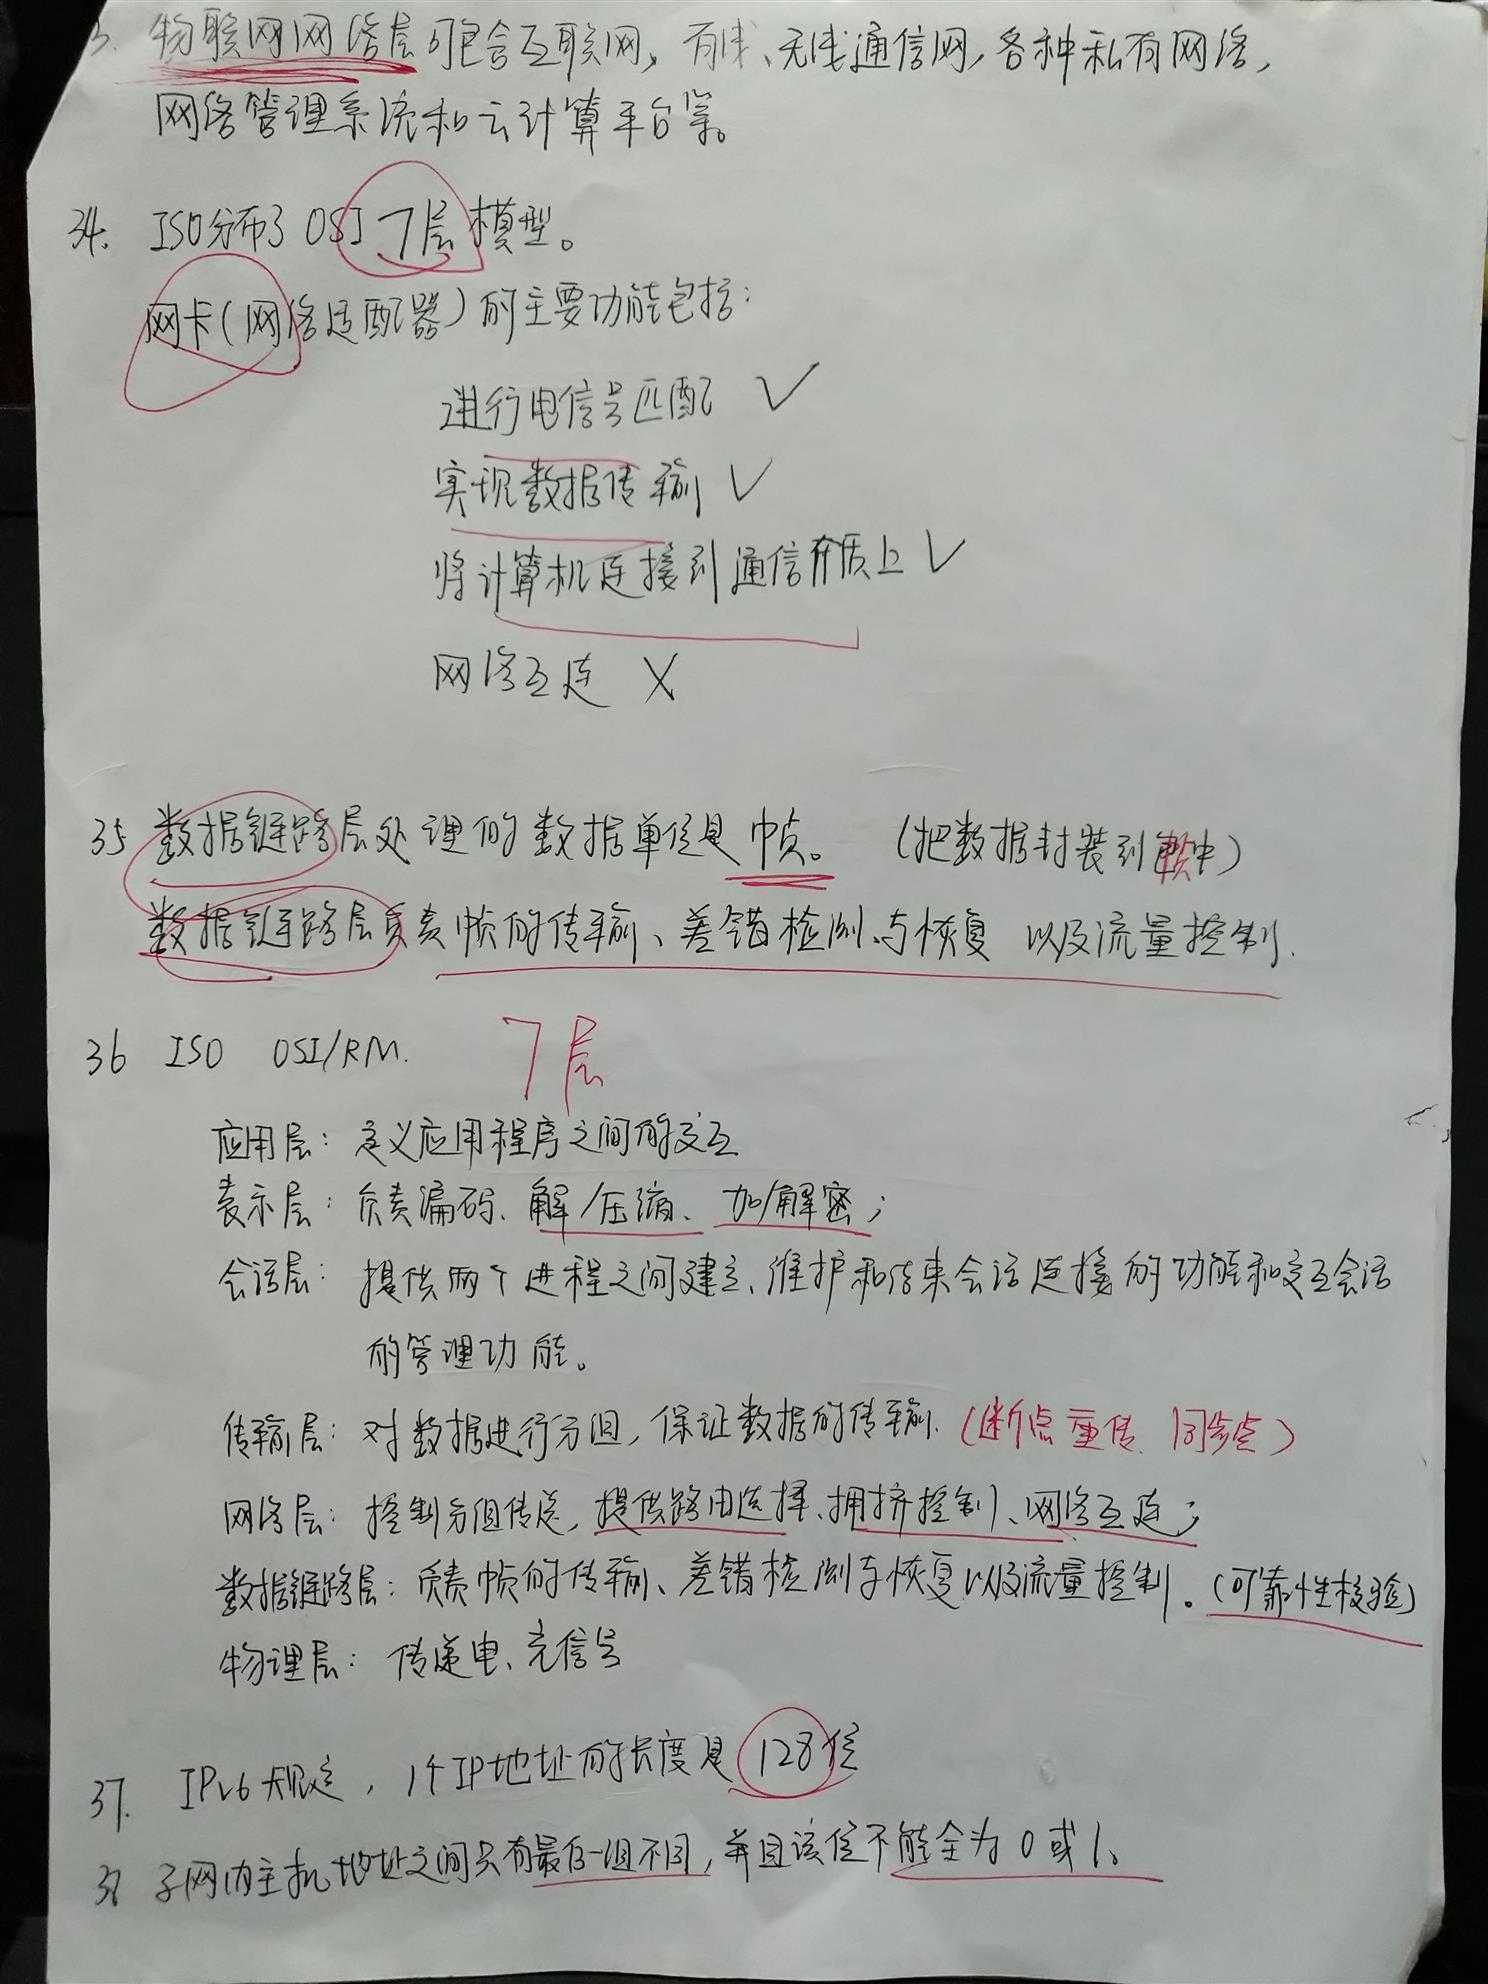 3. 物联网网络层可包含互联网，有线、无线通信网，各种私有网络，
网络管理系统和云计算平台等。
34. ISO分布了OSI 7层模型。
网卡(网络适配器)的主要功能包括：
进行电信号匹配 ✓
实现数据传输 ✓
将计算机连接到通信介质上 ✓
网络互连 X
35 数据链路层处理的数据单位是帧。 (把数据封装到帧中)
数据链路层负责帧的传输、差错检测与恢复 以及流量控制.
36 ISO OSI/RM. 7层
应用层：定义应用程序之间的交互
表示层：负责编码、解/压缩、加/解密；
会话层：提供两个进程之间建立、维护和结束会话连接的功能和交互会话
的管理功能。
传输层：对数据进行分组，保证数据的传输.（断点重传、同步点）
网络层：控制分组传送，提供路由选择、拥挤控制、网络互连；
数据链路层：负责帧的传输、差错检测与恢复以及流量控制。(可靠性校验)
物理层：传递电、光信号
37. IPv6规定，1个IP地址的长度是128位
38 子网内主机地址之间只有最后一组不同，并且该位不能全为0或1。